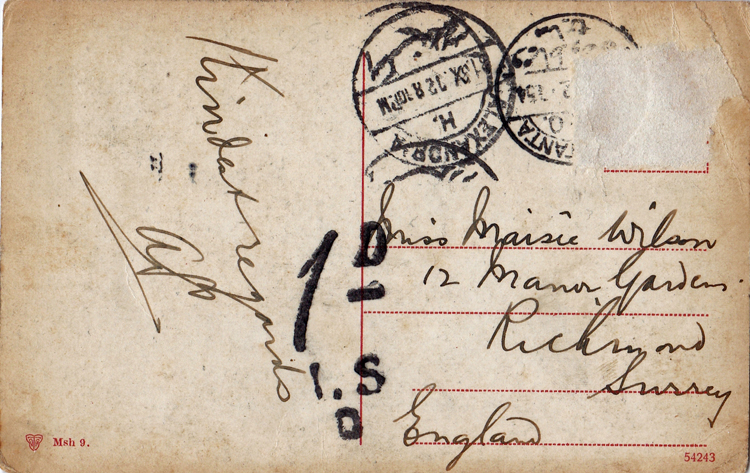 Kindest regards
ALEXANDRIA
H.
TANTA
Miss Maisie Wilson
12 Manor Gardens.
Richmond
Surrey
England
1 D
1.S
D
Msh 9.
54243